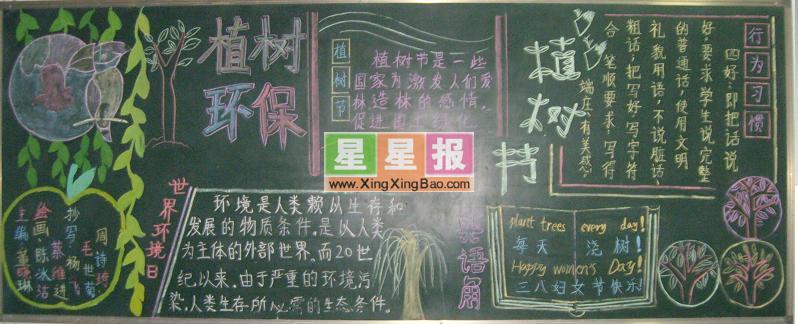 植树
环保
植树节
植树节是一些
国家为激发人们爱
林造林的感情。
促进国土绿化
植树节
行为习惯
四好:即把话说
好,要求学生说完整
的普通话,使用文明
礼貌用语,不说脏话,
粗话;把写好,写字符
合笔顺要求,写得
端庄、有美感。
星星报
www.XingXingBao.com
世界环境日
环境是人类赖以生存和
发展的物质条件。是以人类
为主体的外部世界。而20世
纪以来,由于严重的环境污
染,人类生存所必需的生态条件。
英语角
plant trees every day!
每天浇树!
Happy women's Day!
三八妇女节快乐!
主编:
绘画:陈冰洁
抄写:杨飞